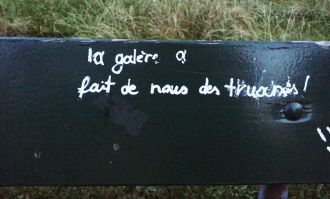 la galère a
fait de nous des truands !